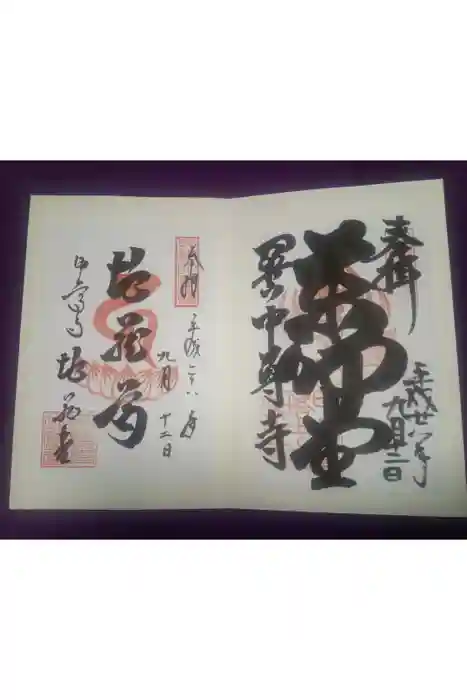 奉拝
平成廿八年
九月十二日
薬師堂
関山中尊寺
奉拝
平成二十八年
九月
十二日
地蔵尊
中尊寺
地蔵堂